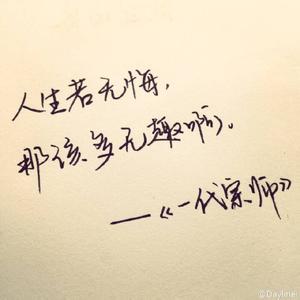 人生若无悔，
那该多无趣啊。
——《一代宗师》
@Dayline